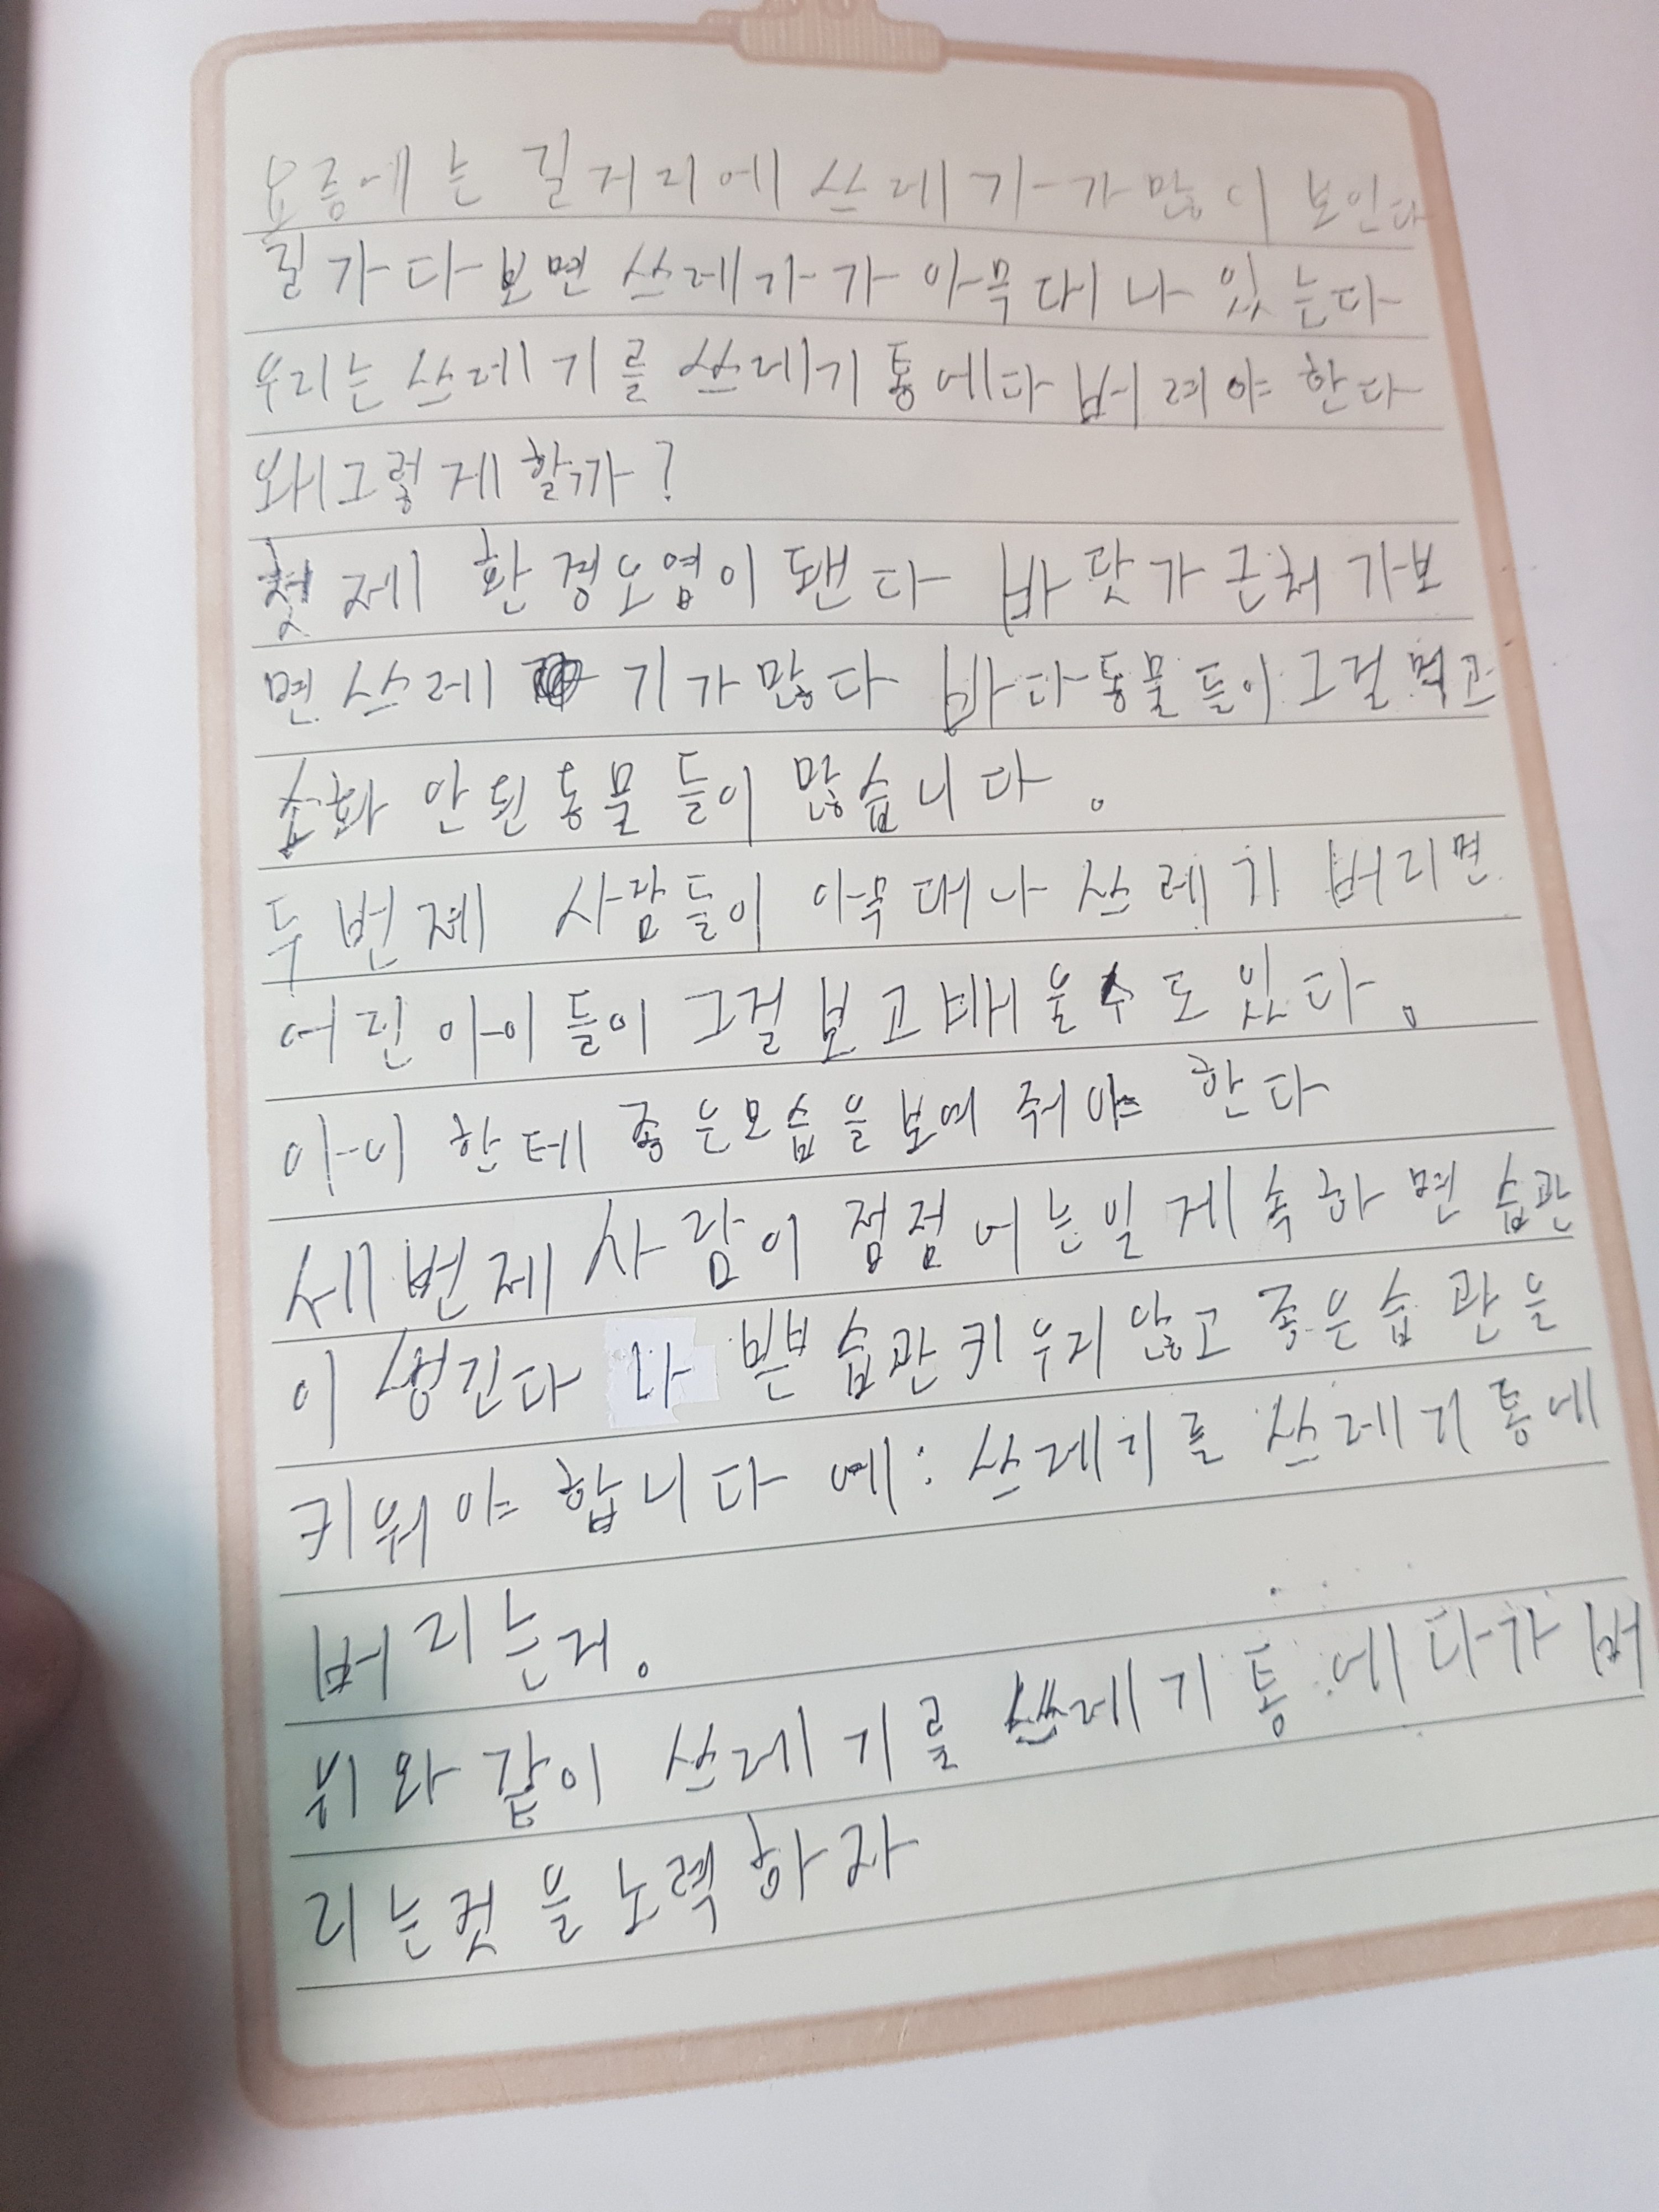 요즘에는 길거리에 쓰레기가 많이 보인다
길가다보면 쓰레가가 아묵대나 있는다
우리는 쓰레기를 쓰레기통에다 버려야 한다
왜그렇게 할까?
첫제 환경오염이 됀다 바닷가 근처 가보
면 쓰레 기가 많다 바다동물들이 그걸 먹고
소화 안된동물들이 많습니다.
두번제 사람들이 아묵대나 쓰레기 버리면
어린아이들이 그걸보고배울수도있다.
아이한테 좋은모습을보여줘야 한다
세번제 사람이 점점 어는일 게속하면 습관
이 생긴다 나쁜습관키우지않고 좋은습관을
키워야 합니다 예: 쓰레기를 쓰레기통에
버리는거.
위와같이 쓰레기를 쓰레기통에다가 버
리는것을노력하자